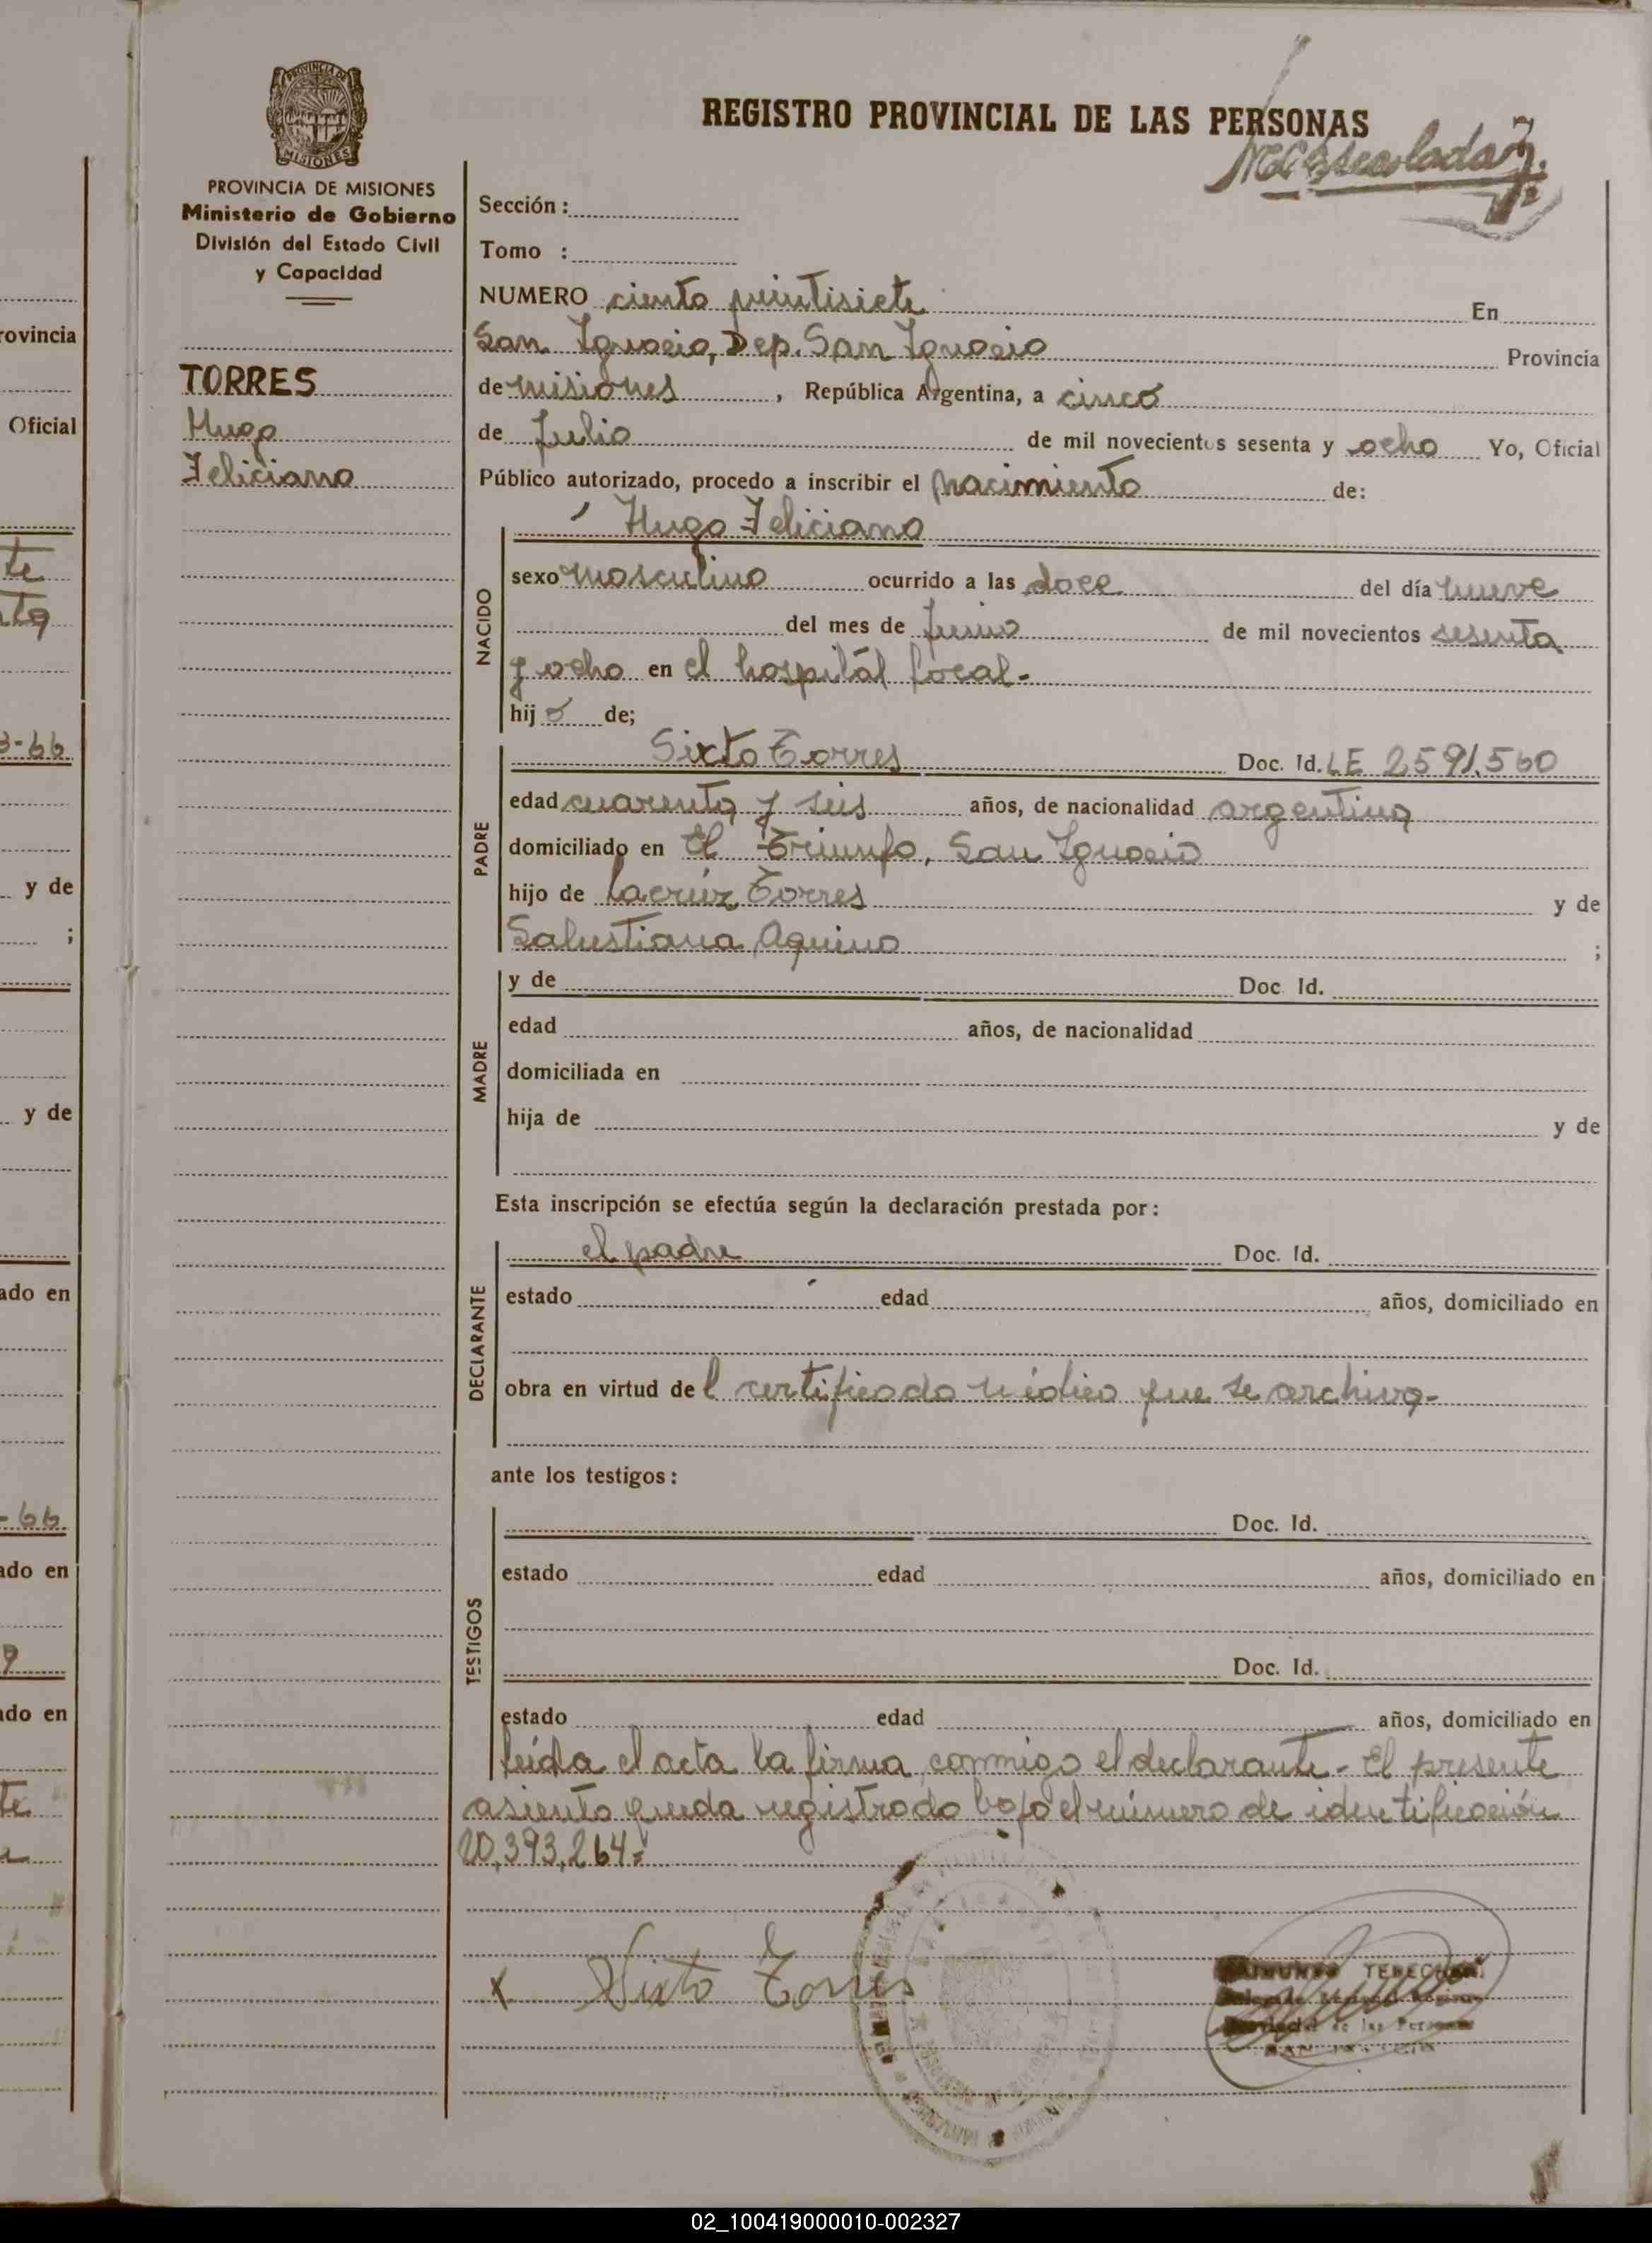 REGISTRO PROVINCIAL DE LAS PERSONAS
PROVINCIA DE MISIONES
Ministerio de Gobierno
División del Estado Civil
y Capacidad
TORRES
Hugo
Feliciano
Sección:
Tomo :
NUMERO ciento En
San Ignacio, Dep. San Ignacio Provincia
de misiones, República Argentina, a cinco
de Julio de mil novecientos sesenta y ocho Yo, Oficial
Público autorizado, procedo a inscribir el nacimiento de:
Hugo Feliciano
NACIDO
sexo masculino ocurrido a las doce del día nueve
del mes de Junio de mil novecientos sesenta
y ocho en el hospitál local.
hijo de;
PADRE
Sixto Torres Doc. Id. LE 2591.560
edad cuarenta y seis años, de nacionalidad argentina
domiciliado en El Triunfo, San Ignacio
hijo de Lacrúz Torres y de
Salustiana Aquino ;
MADRE
y de Doc Id.
edad años, de nacionalidad
domiciliada en
hija de y de
Esta inscripción se efectúa según la declaración prestada por:
DECLARANTE
el padre Doc. Id.
estado edad años, domiciliado en
obra en virtud del certificado médico que se archiva-
ante los testigos:
TESTIGOS
Doc. Id.
estado edad años, domiciliado en
Doc. Id.
estado edad años, domiciliado en
Leída el acta la firma conmigo el declarante - El presente
asiento queda registrado bajo el número de identificación
20,393,264=
x Sixto Torres
rovincia
Oficial
te
3-66
y de
;
y de
ado en
-66
ado en
9
ado en
te
02_100419000010-002327